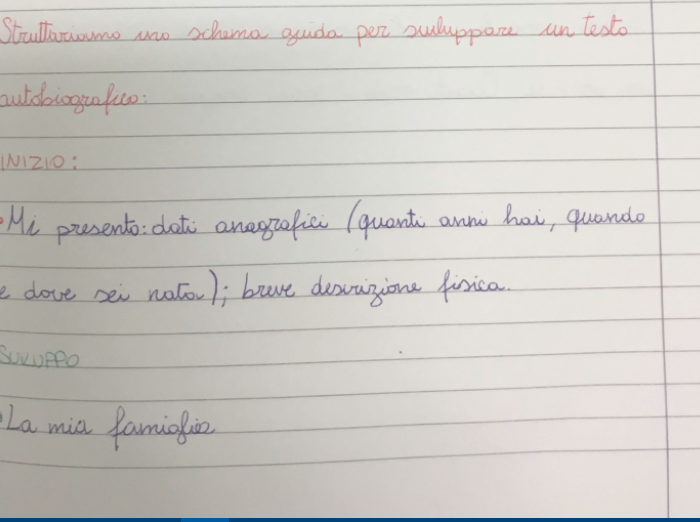 Strutturiamo uno schema guida per sviluppare un testo
autobiografico:
INIZIO:
• Mi presento: dati anagrafici (quanti anni hai, quando
e dove sei nata); breve descrizione fisica.
SVILUPPO
• La mia famiglia